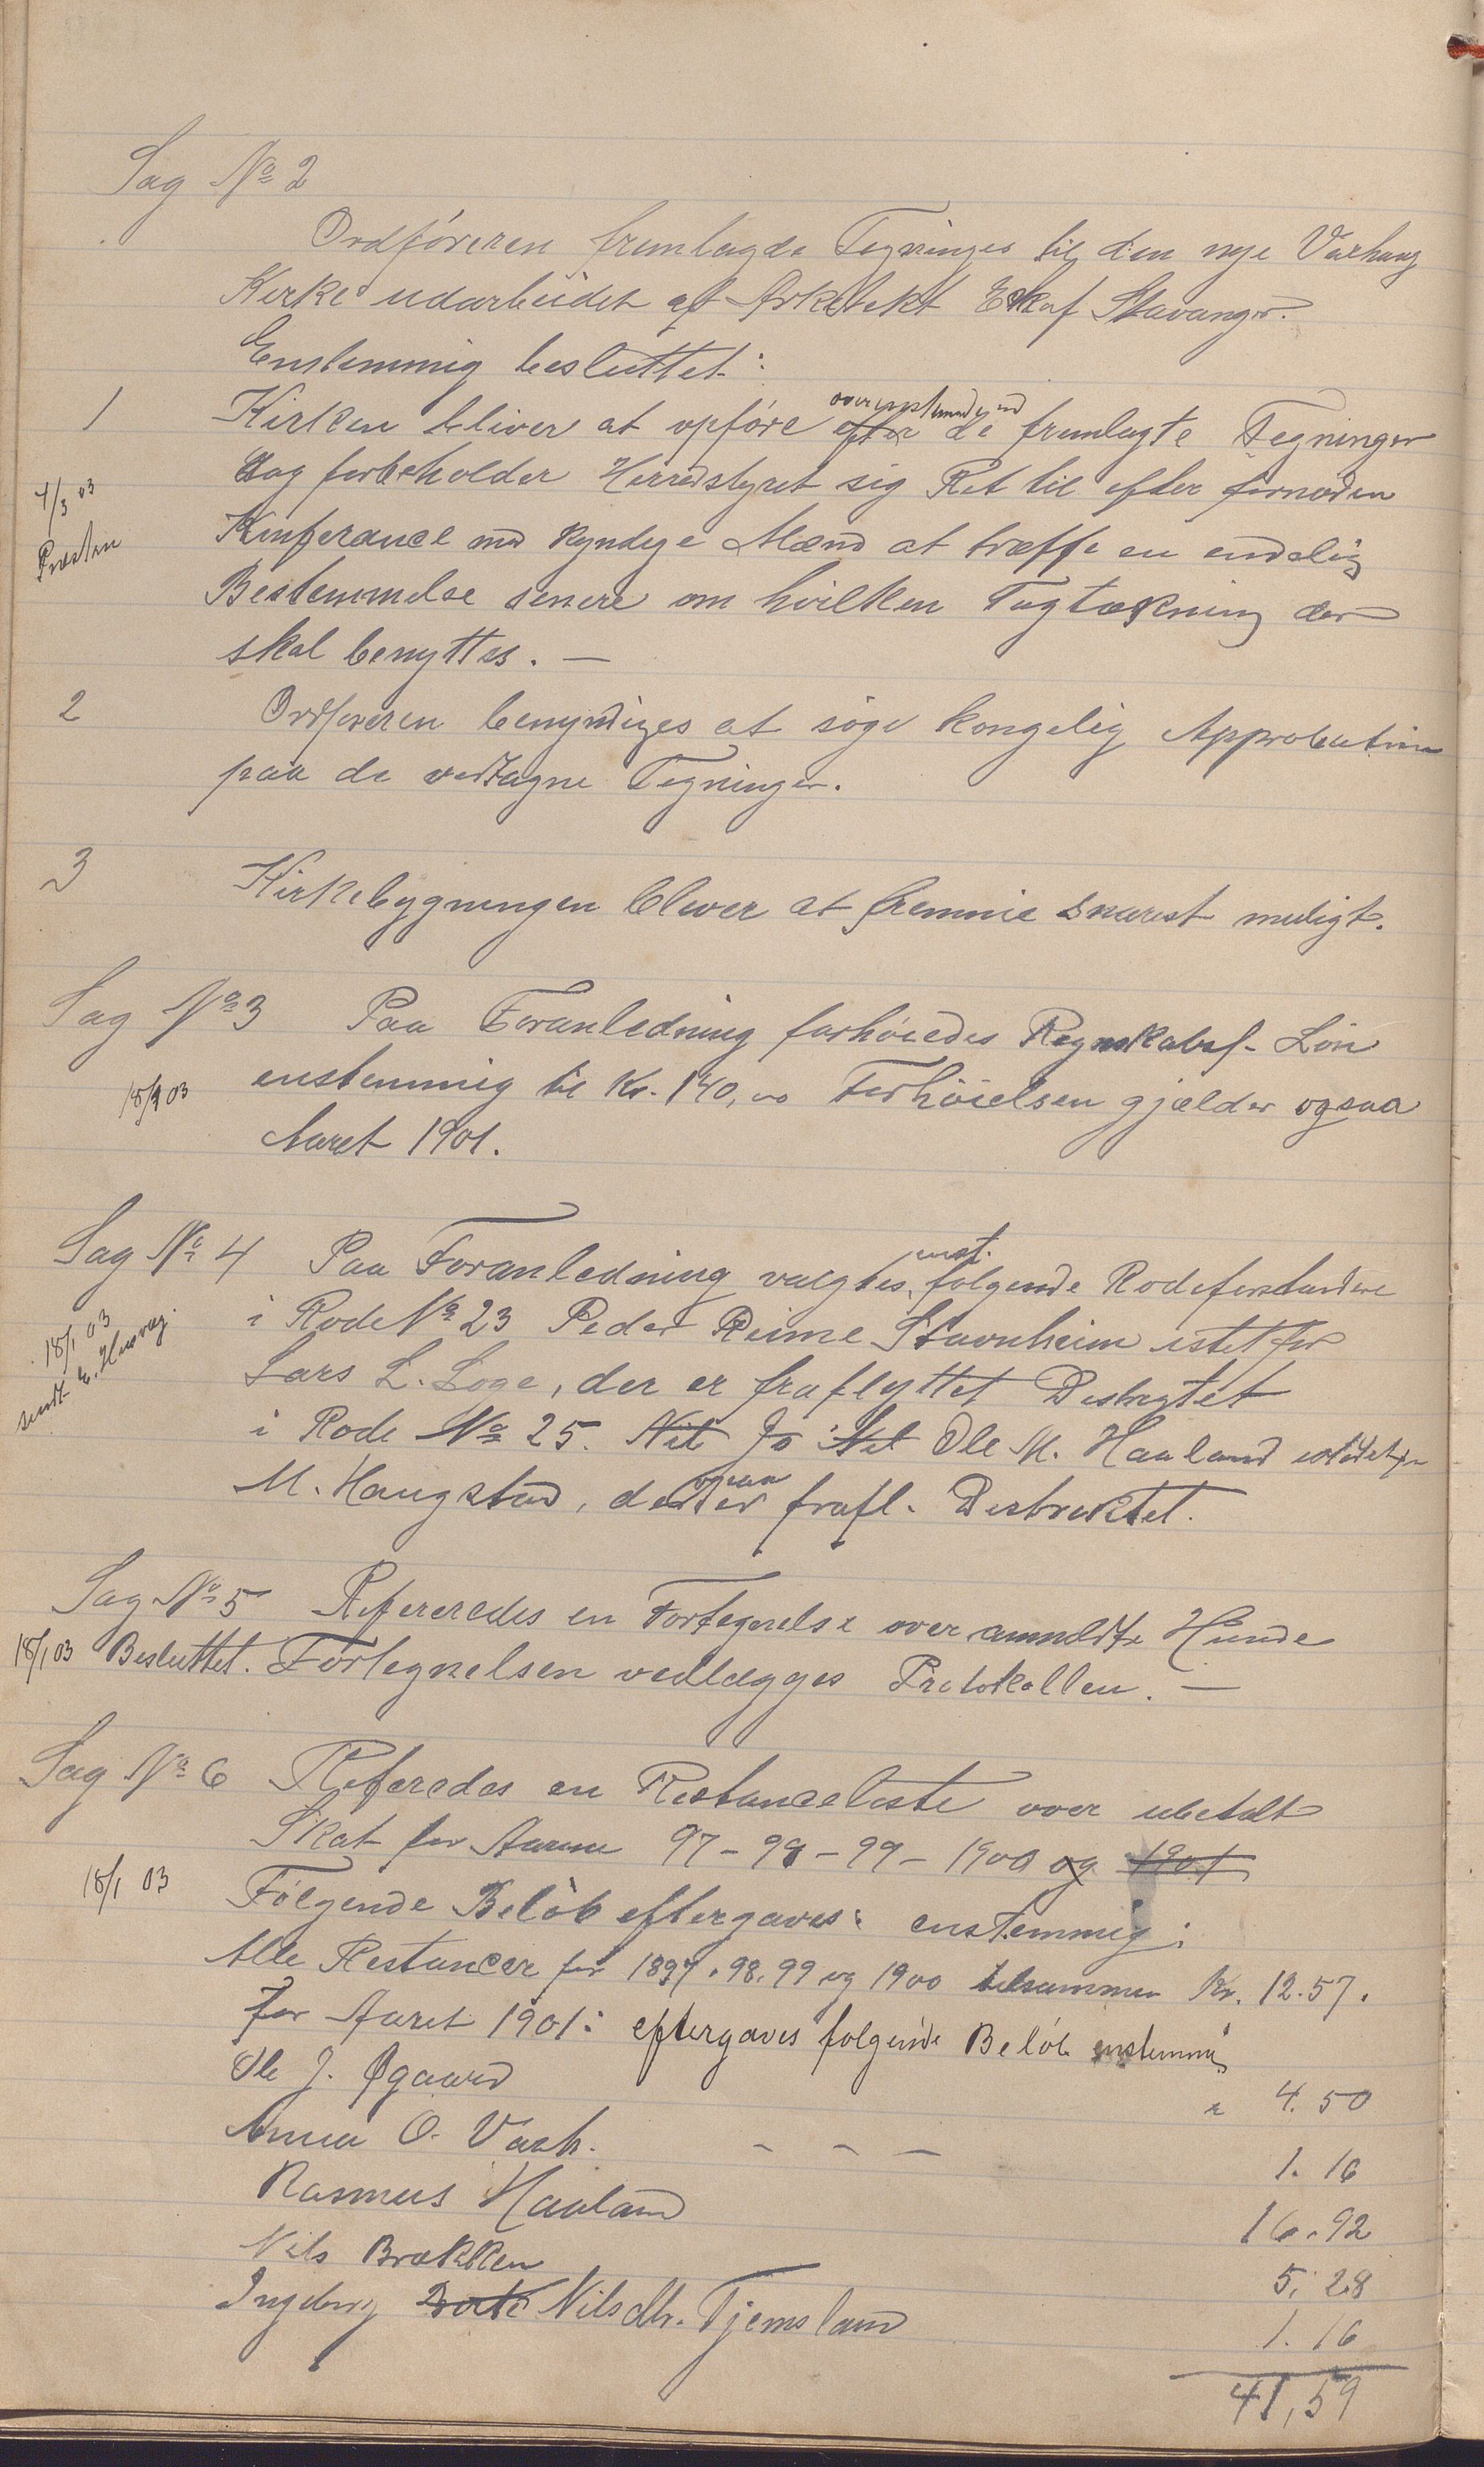 Sag No 2
Ordføreren fremlagde Tegninger til den nye Varhaug
Kirke udarbeidet af Arkitekt Eckhof Stavanger.
Enstemmig besluttet:
1 Kirken bliver at opføre efter overenstemmend de fremlagte Tegninger
dog forbeholder Herredstyret sig Ret til efter fornøden
4/3 03
Konferance med kyndige Mænd at træffe en endelig
Præsten
Bestemmelse senere om hvilken Tagtækning der
skal benyttes. —
2 Ordføreren bemyndiges at søge kongelig Approbation
paa de vedtagne Tegninger.
3 Kirkebygningen bliver at fremme snarest muligt.
Sag No 3 Paa Foranledning forhøiedes Regnskabsf. Løn
enstemmig til Kr. 140,00 Forhøielsen gjælder ogsaa
18/1 03
Aaret 1901.
Sag No 4 Paa Foranledning valgtes enst. følgende Rodeforstandere
i Rode No 23 Peder Reime Stavnheim istetfor
18/1 03
sendt E. Husvæg.
Lars L. Loge, der er fraflyttet Destrygtet
i Rode No 25. Nil Jo Nil Ole M. Haaland istedetfor
M. Haugstad, der ogsaa er frafl. Destrektet.
Sag No 5 Refereredes en Fortegnelse over anmeldte Hunde
18/1 03 Besluttet. Fortegnelsen vedlægges Protokollen. —
Sag No 6 Referedes en Restanceliste over ubetalt
Skat for Aarene 97 - 98 - 99 - 1900 og 1901
18/1 03
Følgende Beløb eftergaves: enstemmig:
Alle Restancer for 1897. 98. 99 og 1900 tilsammen Kr. 12.57.
For Aaret 1901: eftergaves følgende Beløb enstemmig
Ole J. Øgaard " 4.50
Anna O. Varh. - - - 1.16
Rasmus Haaland 16.92
Nils Brækken 5.28
Ingeborg Nilsdtr. Tjemsland 1.16
41,59